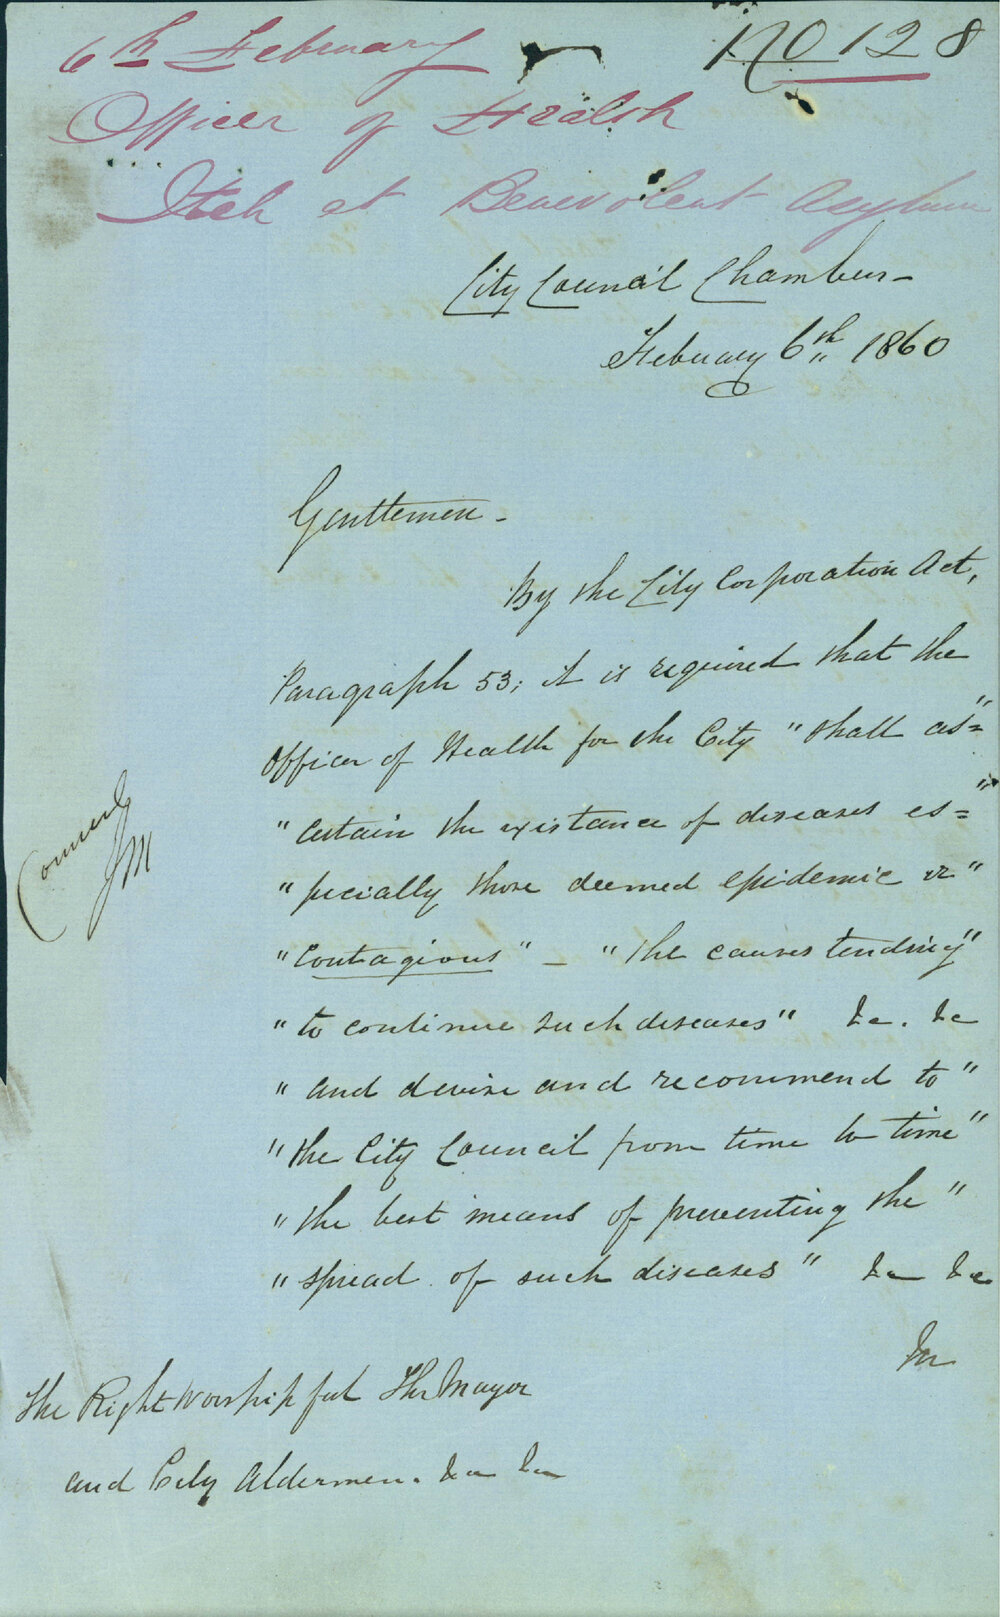 6th February No 128
Officer of Health
Itch at Benevolent Asylum
City Council Chamber -
February 6th 1860
Gentlemen -
By the City Corporation Act,
Paragraph 53; it is required that the
Officer of Health for the City "shall as="
"certain the existance of diseases es="
"pecially those deemed epidemic or"
"Contagious" - "the causes tending"
"to continue such diseases" &c. &c
"and devise and recommend to"
"the City Council from time to time"
"the best means of preventing the"
"spread of such diseases" &c &c
In
Council
JM
The Right Worshipful The Mayor
and City Aldermen. &c &c